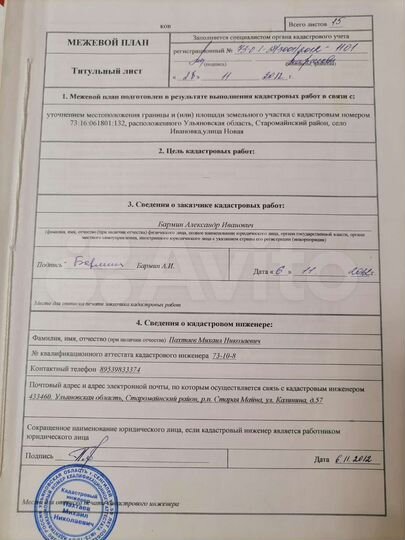 коп
Всего листов 15
МЕЖЕВОЙ ПЛАН
Титульный лист
Заполняется специалистом органа кадастрового учета
регистрационный №
(подпись)
« 28 » 11 2012 г.
1. Межевой план подготовлен в результате выполнения кадастровых работ в связи с:
уточнением местоположения границы и (или) площади земельного участка с кадастровым номером
73:16:061801:132, расположенного Ульяновская область, Старомайнский район, село
Ивановка,улица Новая
2. Цель кадастровых работ:
3. Сведения о заказчике кадастровых работ:
Бармин Александр Иванович
(фамилия, имя, отчество (при наличии отчества) физического лица, полное наименование юридического лица, органа государственной власти, органа
местного самоуправления, иностранного юридического лица с указанием страны его регистрации (инкорпорации)
Подпись Бармин Бармин А.И. Дата « 6 » 11 2012г.
Место для оттиска печати заказчика кадастровых работ
4. Сведения о кадастровом инженере:
Фамилия, имя, отчество (при наличии отчества) Пахтаев Михаил Николаевич
№ квалификационного аттестата кадастрового инженера 73-10-8
Контактный телефон 89539833374
Почтовый адрес и адрес электронной почты, по которым осуществляется связь с кадастровым инженером
433460. Ульяновская область, Старомайнский район, р.п. Старая Майна, ул. Калинина, д.57
Сокращенное наименование юридического лица, если кадастровый инженер является работником
юридического лица
Подпись Дата 6.11.2012
Место для оттиска печати кадастрового инженера
Кадастровый
инженер
Пахтаев
Михаил
Николаевич
Avito